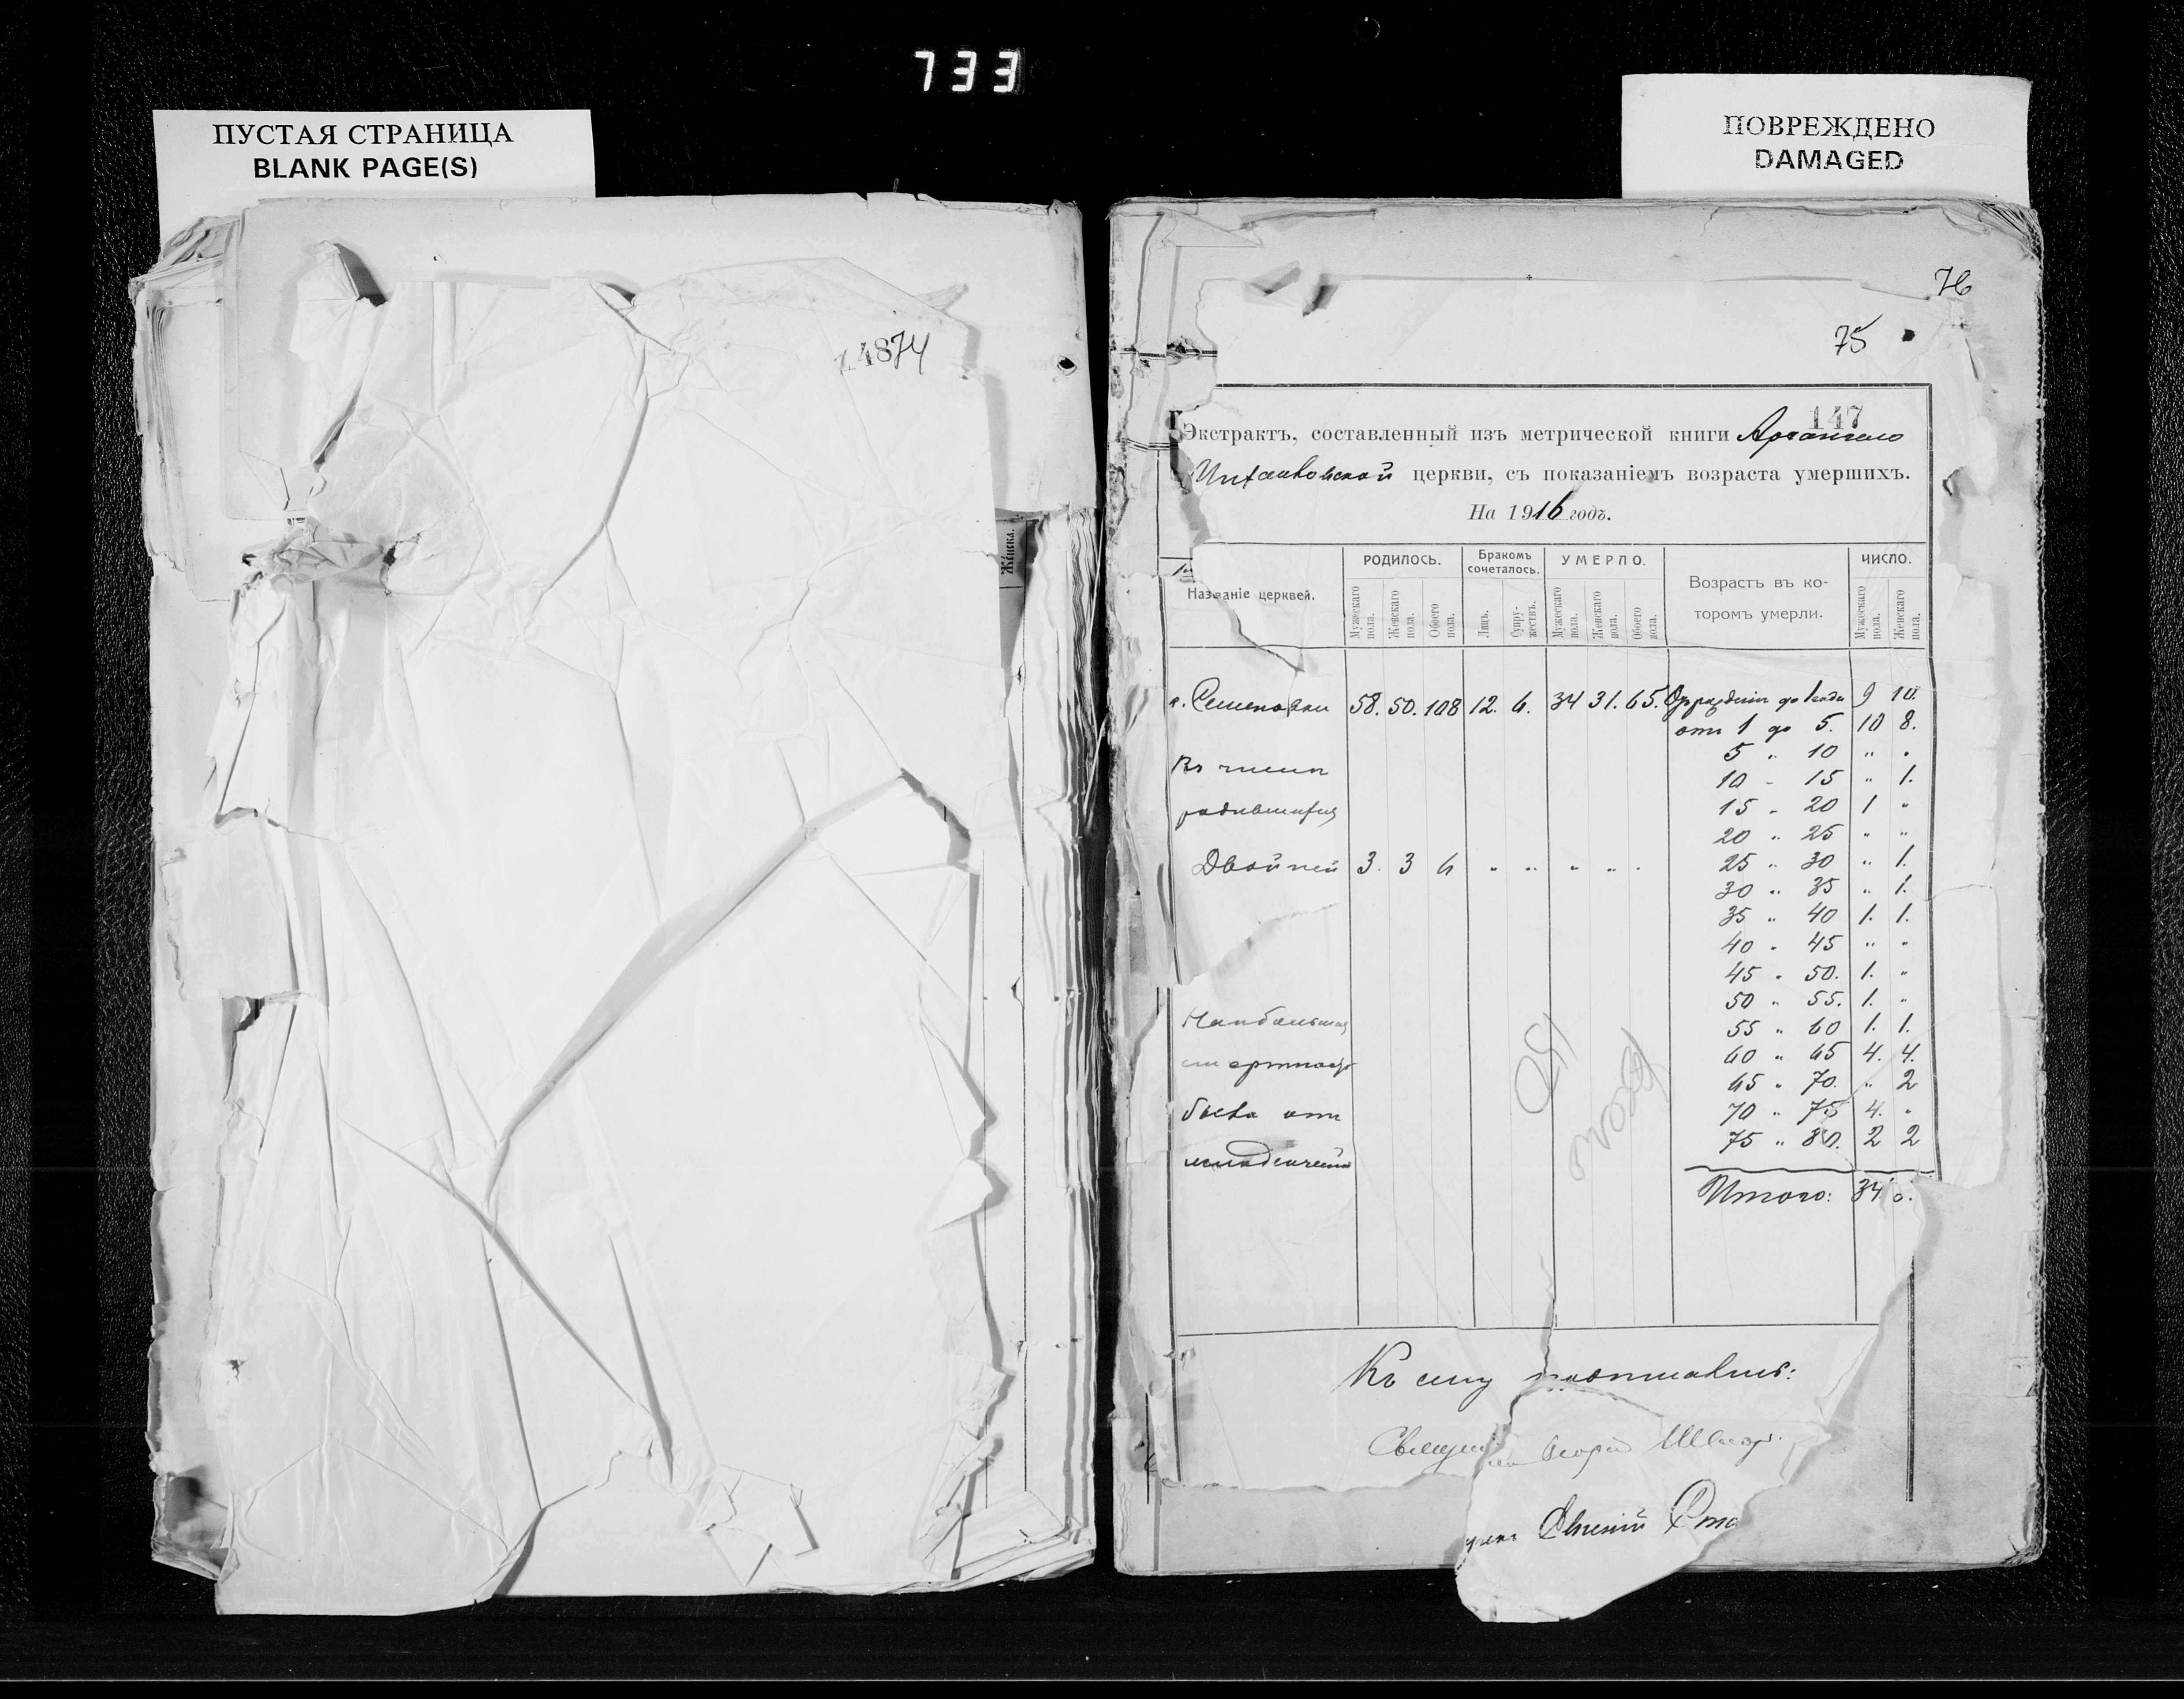 733
ПУСТАЯ СТРАНИЦА
BLANK PAGE(S)
ПОВРЕЖДЕНО
DAMAGED
14874
Женска.
76
75
147
Экстрактъ, составленный изъ метрической книги Архангело
Михайловской церкви, съ показаніемъ возраста умершихъ.
На 1916 годъ.
Названіе церквей.
РОДИЛОСЬ.
Бракомъ сочеталось.
УМЕРЛО.
Возрастъ въ которомъ умерли.
ЧИСЛО.
Мужескаго пола.
Женскаго пола.
Обоего пола.
Лицъ.
Супружествъ.
Мужескаго пола.
Женскаго пола.
Обоего пола.
Мужескаго пола.
Женскаго пола.
с. Семеновки 58. 50. 108 12. 6. 34 31. 65. до 1 года 9 10.
отъ 1 до 5. 10 8.
5 " 10 " "
Въ числѣ
10 - 15 " 1.
родившихся
15 - 20 1 "
20 " 25 " "
Двойней 3. 3 6 " " " " "
25 " 30 " 1.
30 " 35 " 1.
35 " 40 1. 1.
40 " 45 " "
45 " 50. 1. "
50 " 55. 1. "
Наибольшая
55 " 60 1. 1.
смертность
60 " 65 4. 4.
65 " 70. " 2
была отъ
70 " 75 4. "
75 " 80. 2 2
Итого: 34
150
Къ сему
Свящ
Евгеній